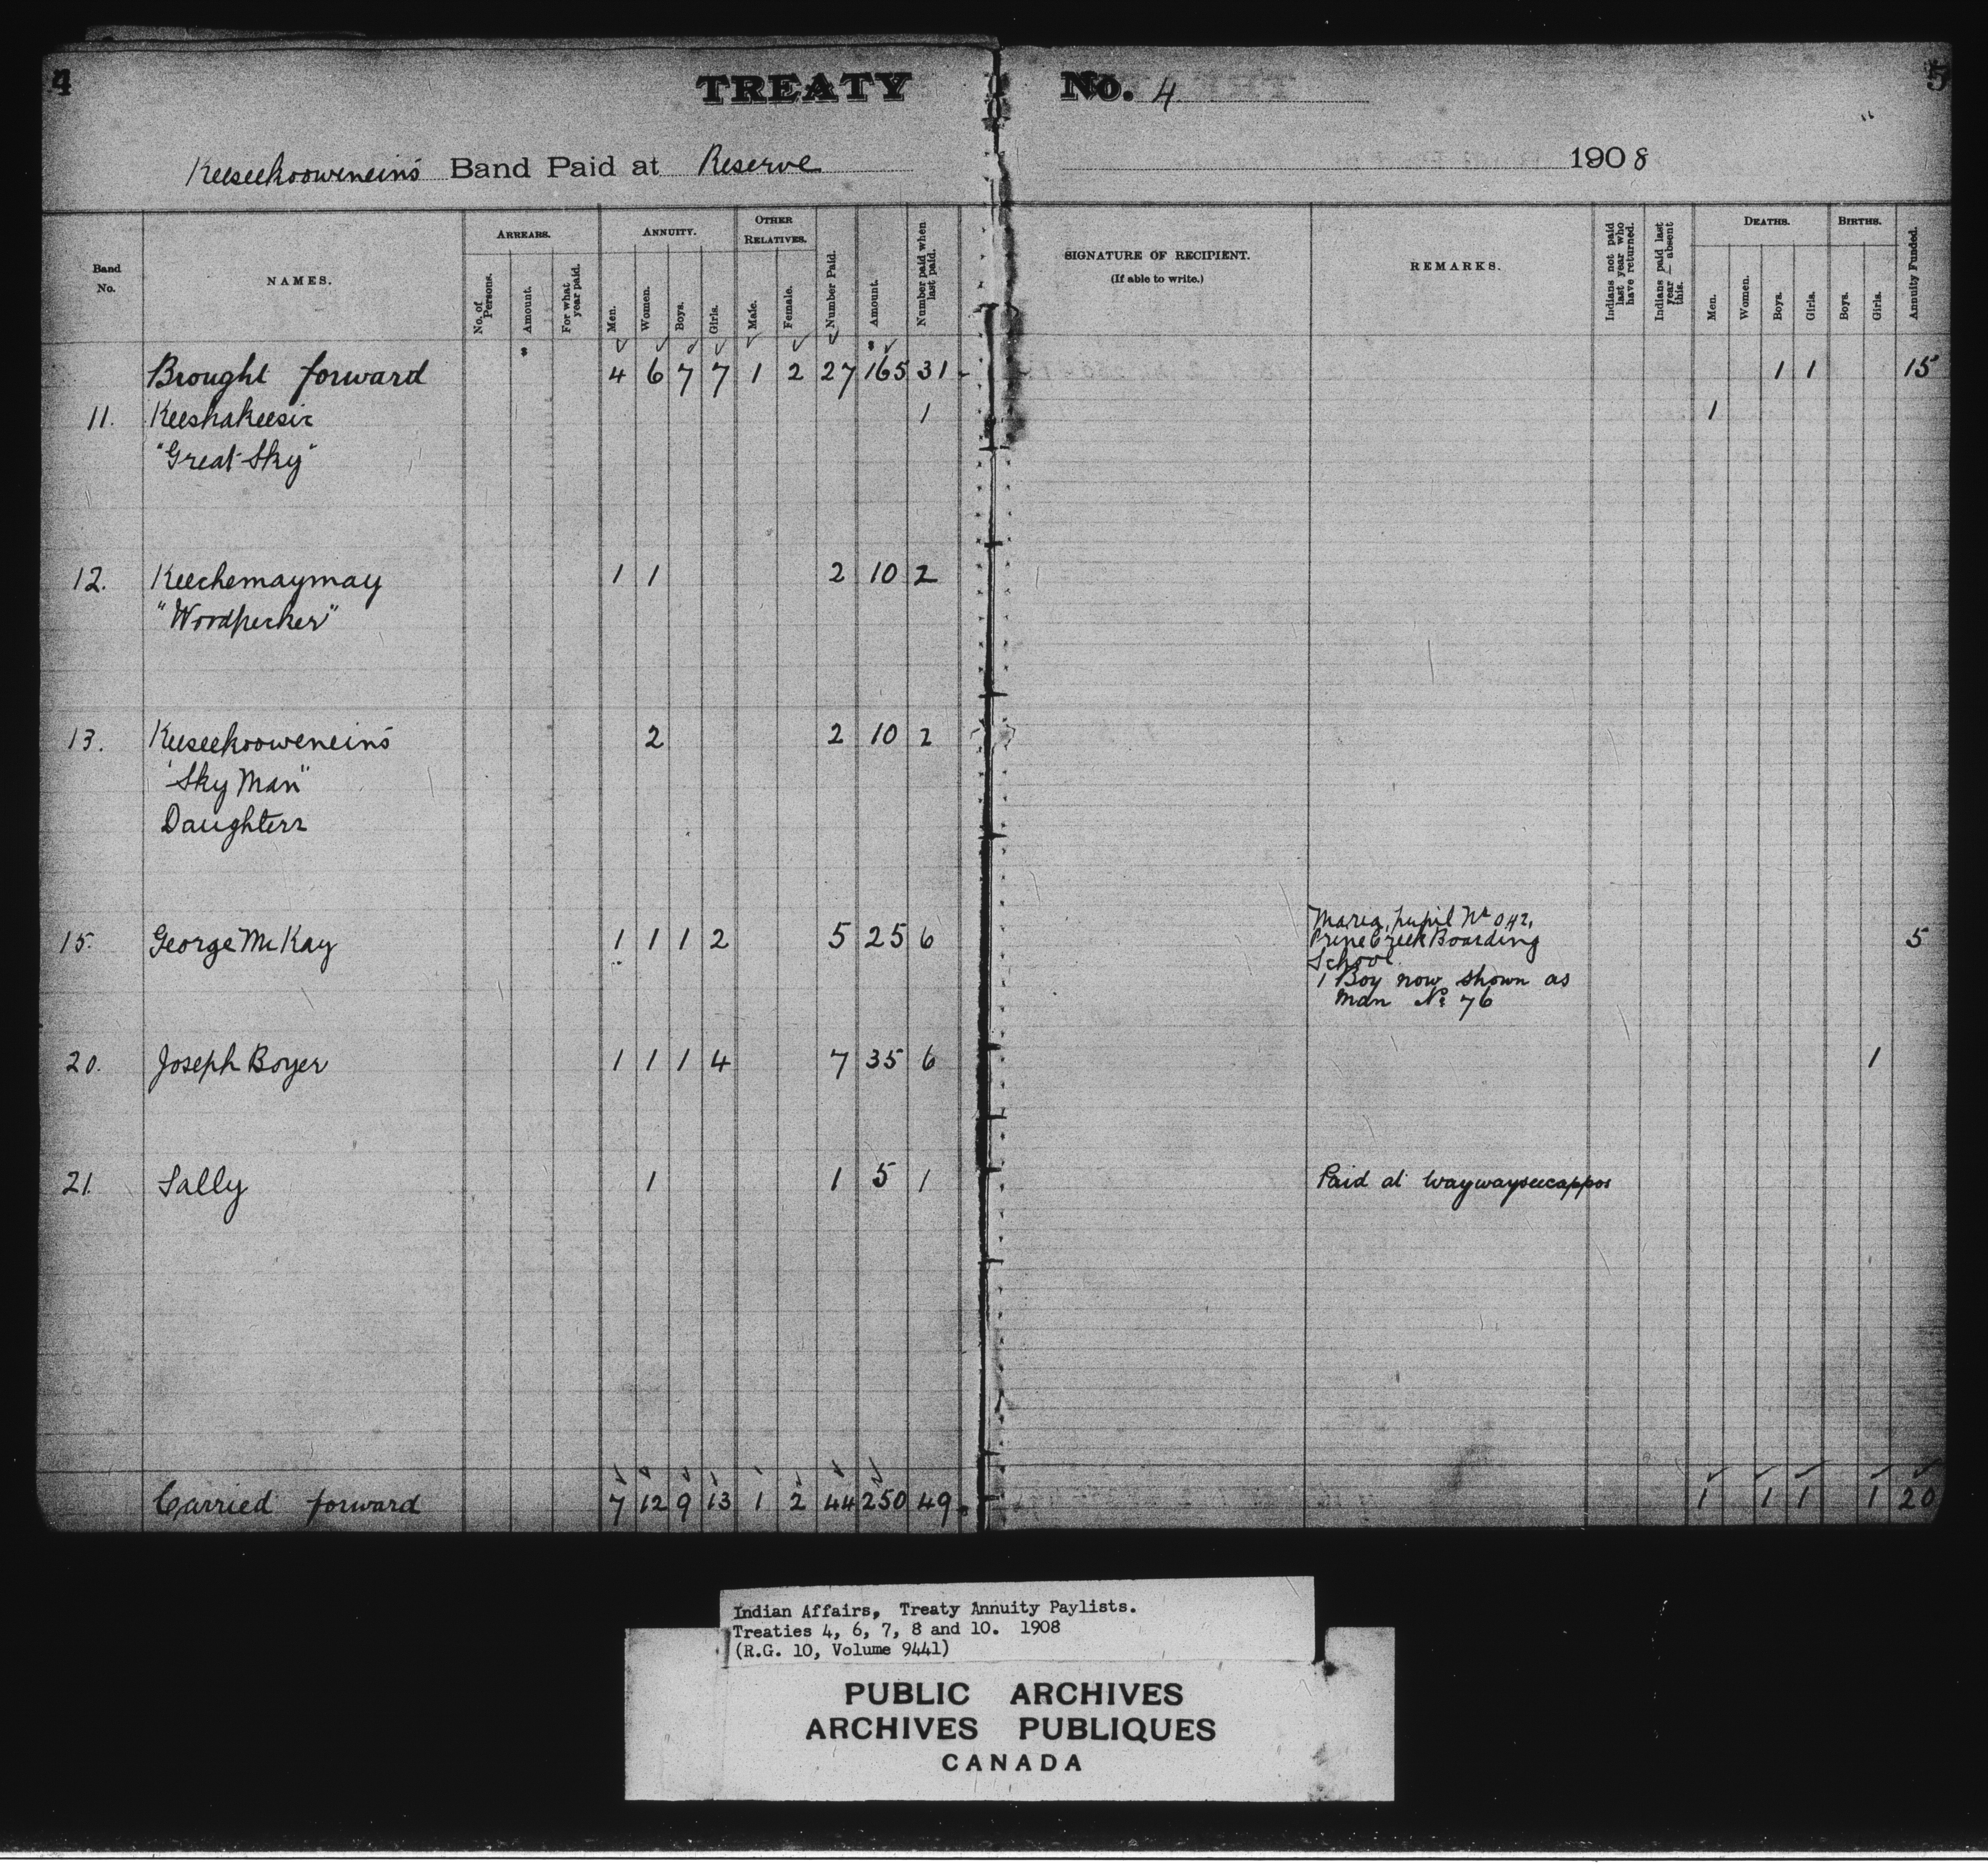 4
TREATY No. 4
5
Keeseekooweneins Band Paid at Reserve 1908
Band No.
NAMES.
ARREARS.
No. of Persons.
Amount.
For what year paid.
ANNUITY.
Men.
Women.
Boys.
Girls.
OTHER RELATIVES.
Male.
Female.
Number Paid.
Amount.
Number paid when last paid.
SIGNATURE OF RECIPIENT.
(If able to write.)
REMARKS.
Indians not paid last year who have returned.
Indians paid last year — absent this.
DEATHS.
Men.
Women.
Boys.
Girls.
BIRTHS.
Boys.
Girls.
Annuity Funded.
$ $
Brought forward 4 6 7 7 1 2 27 165 31 1 1 15
11. Keeshakeesic 1 1
"Great Sky"
12. Keechemaymay 1 1 2 10 2
"Woodpecker"
13. Keeseekooweneins 2 2 10 2
"Sky Man"
Daughters
15. George McKay 1 1 1 2 5 25 6 Maria, pupil No 042, 5
Pine Creek Boarding
School.
1 Boy now shown as
man No 76
20. Joseph Boyer 1 1 1 4 7 35 6 1
21. Sally 1 1 5 1 Paid at Waywayseecappos
Carried forward 7 12 9 13 1 2 44 250 49 1 1 1 1 20
Indian Affairs, Treaty Annuity Paylists.
Treaties 4, 6, 7, 8 and 10. 1908
(R.G. 10, Volume 9441)
PUBLIC ARCHIVES
ARCHIVES PUBLIQUES
CANADA